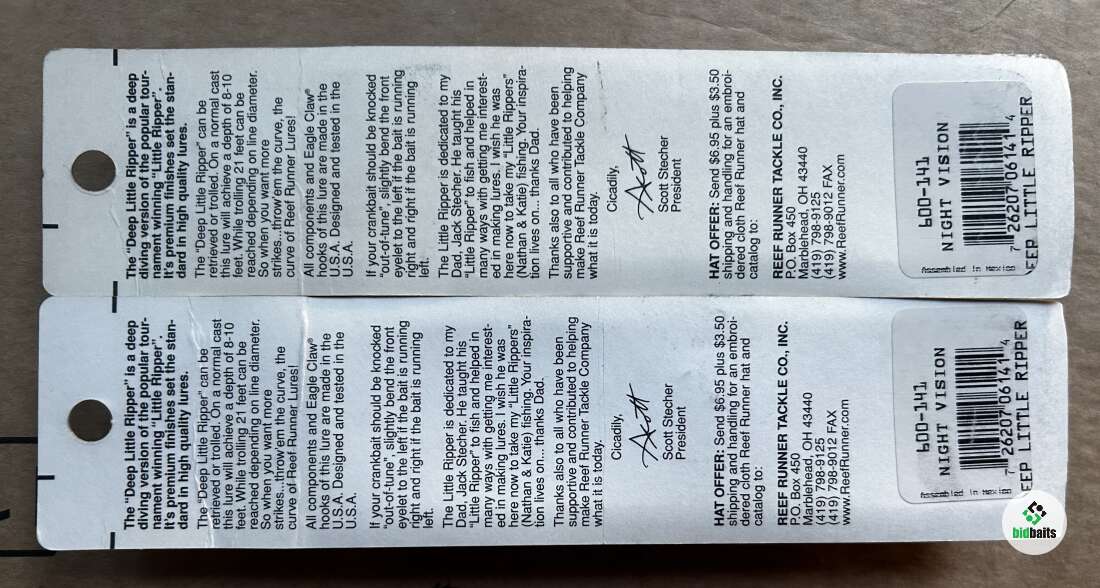 The "Deep Little Ripper" is a deep
diving version of the popular tour-
nament winning "Little Ripper".
It's premium finishes set the stan-
dard in high quality lures.
The "Deep Little Ripper" can be
retrieved or trolled. On a normal cast
this lure will achieve a depth of 8-10
feet. While trolling 21 feet can be
reached depending on line diameter.
So when you want more
strikes...throw'em the curve, the
curve of Reef Runner Lures!
All components and Eagle Claw®
hooks of this lure are made in the
U.S.A. Designed and tested in the
U.S.A.
If your crankbait should be knocked
"out-of-tune", slightly bend the front
eyelet to the left if the bait is running
right and right if the bait is running
left.
The Little Ripper is dedicated to my
Dad, Jack Stecher. He taught his
"Little Ripper" to fish and helped in
many ways with getting me interest-
ed in making lures. I wish he was
here now to take my "Little Rippers"
(Nathan & Katie) fishing. Your inspira-
tion lives on... thanks Dad.
Thanks also to all who have been
supportive and contributed to helping
make Reef Runner Tackle Company
what it is today.
Cicadily,
Scott
Scott Stecher
President
HAT OFFER: Send $6.95 plus $3.50
shipping and handling for an embroi-
dered cloth Reef Runner hat and
catalog to:
REEF RUNNER TACKLE CO., INC.
P.O. Box 450
Marblehead, OH 43440
(419) 798-9125
(419) 798-9012 FAX
www.ReefRunner.com
600-141
NIGHT VISION
7 26207 06141 4
EEP LITTLE RIPPER
The "Deep Little Ripper" is a deep
diving version of the popular tour-
nament winning "Little Ripper".
It's premium finishes set the stan-
dard in high quality lures.
The "Deep Little Ripper" can be
retrieved or trolled. On a normal cast
this lure will achieve a depth of 8-10
feet. While trolling 21 feet can be
reached depending on line diameter.
So when you want more
strikes...throw'em the curve, the
curve of Reef Runner Lures!
All components and Eagle Claw®
hooks of this lure are made in the
U.S.A. Designed and tested in the
U.S.A.
If your crankbait should be knocked
"out-of-tune", slightly bend the front
eyelet to the left if the bait is running
right and right if the bait is running
left.
The Little Ripper is dedicated to my
Dad, Jack Stecher. He taught his
"Little Ripper" to fish and helped in
many ways with getting me interest-
ed in making lures. I wish he was
here now to take my "Little Rippers"
(Nathan & Katie) fishing. Your inspira-
tion lives on... thanks Dad.
Thanks also to all who have been
supportive and contributed to helping
make Reef Runner Tackle Company
what it is today.
Cicadily,
Scott
Scott Stecher
President
HAT OFFER: Send $6.95 plus $3.50
shipping and handling for an embroi-
dered cloth Reef Runner hat and
catalog to:
REEF RUNNER TACKLE CO., INC.
P.O. Box 450
Marblehead, OH 43440
(419) 798-9125
(419) 798-9012 FAX
www.ReefRunner.com
600-141
NIGHT VISION
7 26207 06141 4
EEP LITTLE RIPPER
Assembled in Mexico
bidbaits